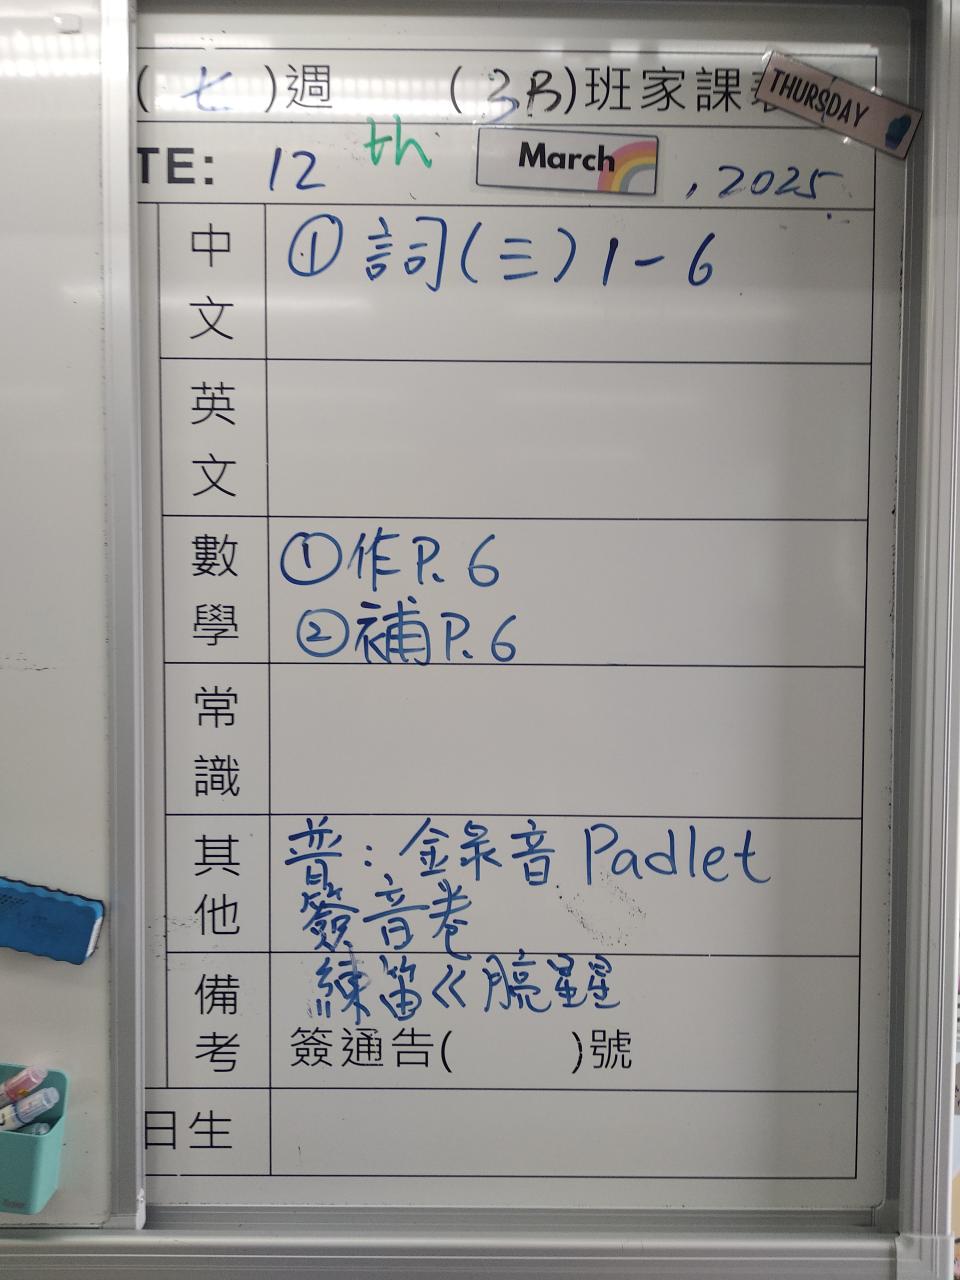 (七)週 (3B)班家課
THURSDAY
TE: 12th March, 2025
中文 ①詞(三)1-6
英文
數學 ①作P.6
②補P.6
常識
其他 普:金錄音 Padlet
簽音卷
備考 練笛《 星星
簽通告( )號
日生